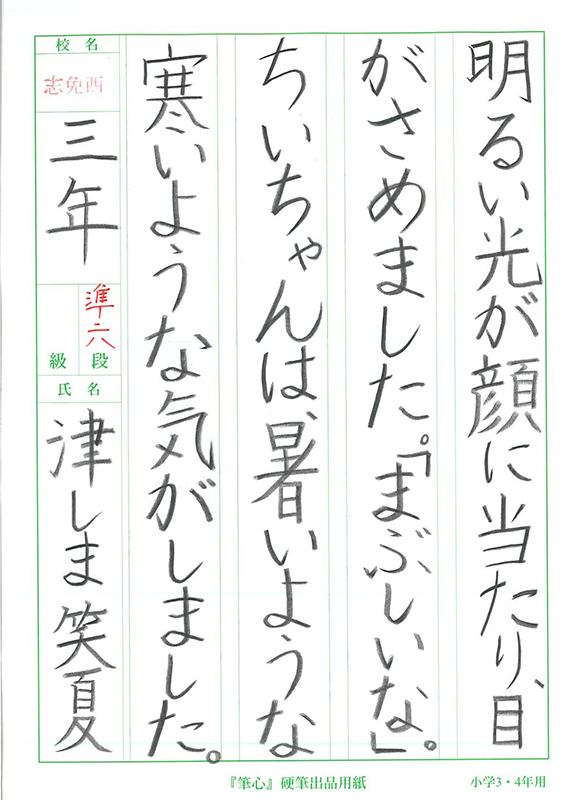 明るい光が顔に当たり、目
がさめました。「まぶしいな」。
ちいちゃんは、暑いような
寒いような気がしました。
校名
志免西
三年
準六
級段
氏名
津しま笑夏
『筆心』硬筆出品用紙
小学3・4年用